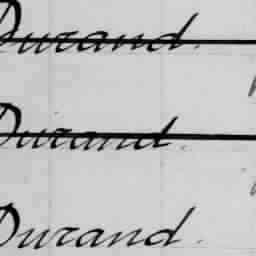 Durand.
Durand.
Durand.